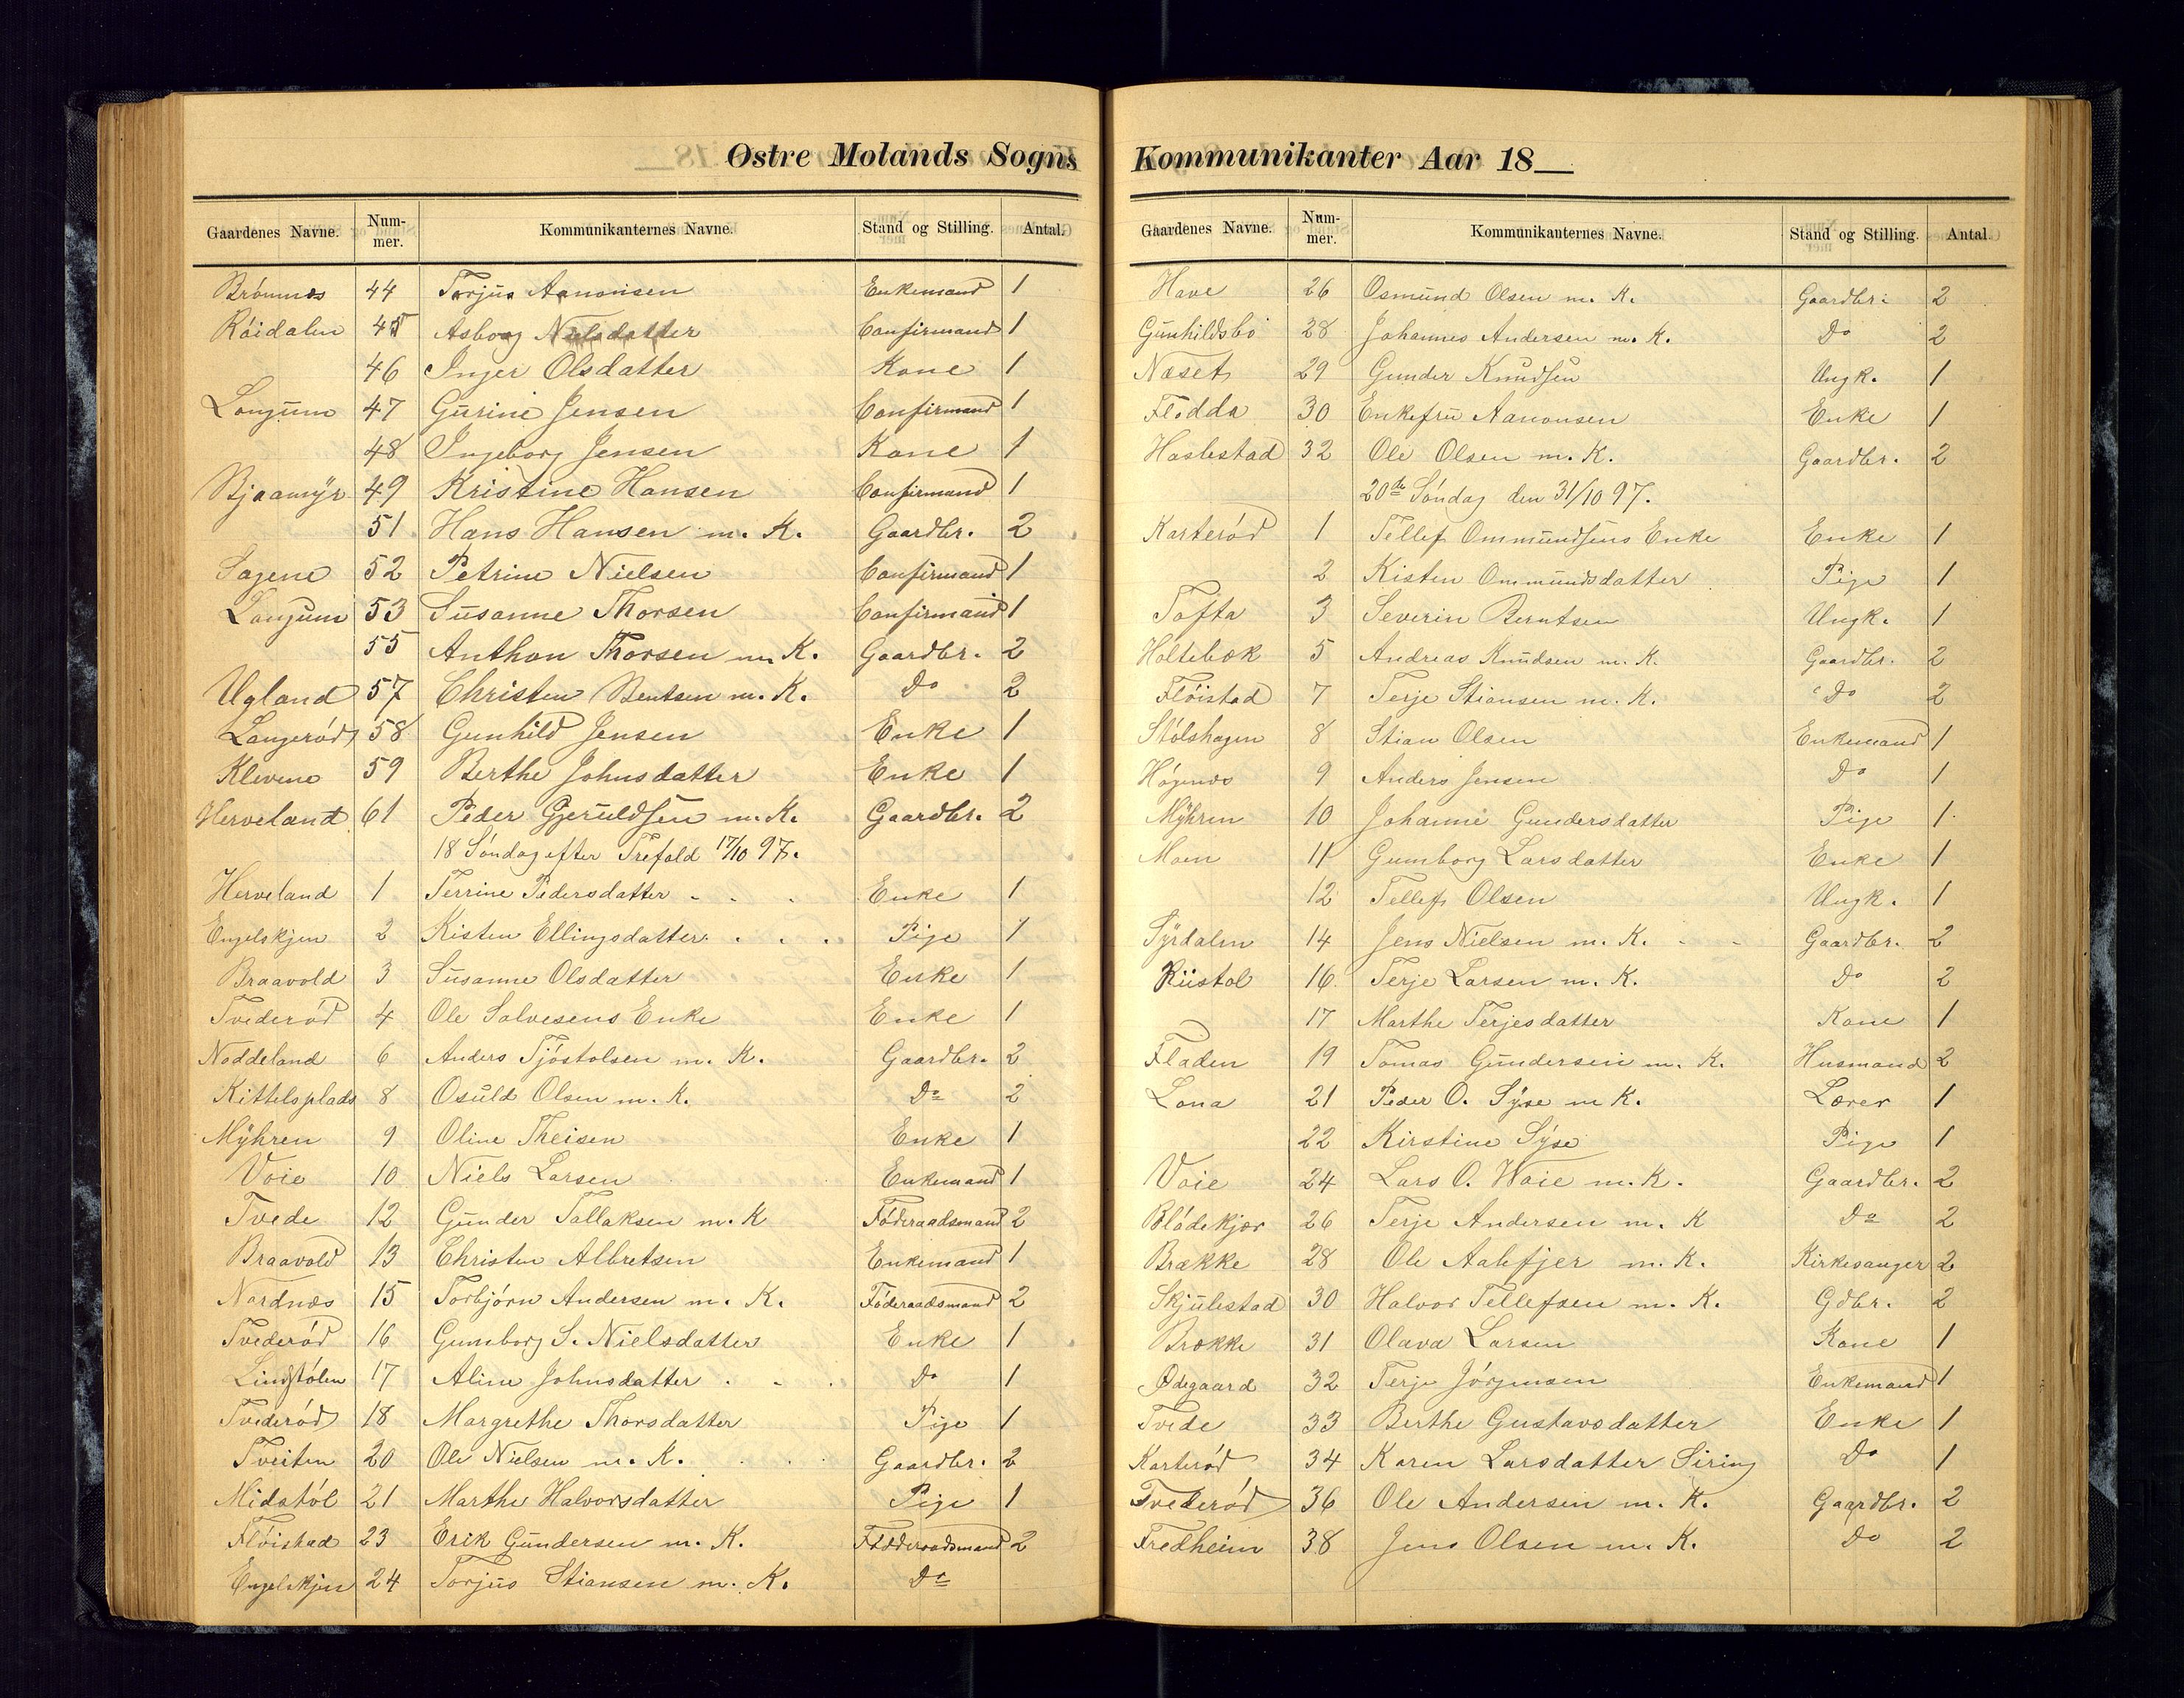 Østre Molands Sogns
Gaardenes Navne. Num-mer. Kommunikanternes Navne. Stand og Stilling. Antal.
Brömnes 44 Torjus Aanonsen Enkemand 1
Röidalen 45 Asborg Nielsdatter Confirmand 1
46 Inger Olsdatter Kone 1
Longum 47 Gurine Jensen Confirmand 1
48 Ingeborg Jensen Kone 1
Bjaamyr 49 Kristine Hansen Confirmand 1
51 Hans Hansen m. K. Gaardbr. 2
Sagene 52 Petrine Nielsen Confirmand 1
Longum 53 Susanne Thorsen Confirmand 1
55 Anthon Thorsen m. K. Gaardbr. 2
Ugland 57 Christen Bentsen m. K. Do 2
Langeröd 58 Gunhild Jensen Enke 1
Klevene 59 Berthe Johnsdatter Enke 1
Herveland 61 Peder Gjeruldsen m. K. Gaardbr. 2
18 Söndag efter Trefold 17/10 97.
Herveland 1 Terrine Pedersdatter Enke 1
Engelskjen 2 Kisten Ellingsdatter Pige 1
Braavold 3 Susanne Olsdatter Enke 1
Tvederöd 4 Ole Salvesens Enke Enke 1
Noddeland 6 Anders Tjöstolsen m. K. Gaardbr. 2
Kittelsplads 8 Osuld Olsen m. K. Do 2
Mÿhren 9 Oline Theisen Enke 1
Voie 10 Niels Larsen Enkemand 1
Tvede 12 Gunder Tallaksen m. K Föderaadsmand 2
Braavold 13 Christen Albretsen Enkemand 1
Nardnes 15 Torbjörn Andersen m. K. Föderaadsmand 2
Tvederöd 16 Gumborg S. Nielsdatter Enke 1
Lindstölen 17 Aline Johnsdatter Do 1
Tvederöd 18 Margrethe Thorsdatter Pige 1
Tveiten 20 Ole Nielsen m. K. Gaardbr. 2
Midstöl 21 Marthe Halvorsdatter Pige 1
Flöistad 23 Erik Gundersen m. K. Föderaadsmand 2
Engelskjen 24 Torjus Stiansen m. K. Do
Kommunikanter Aar 18
Gaardenes Navne. Num-mer. Kommunikanternes Navne. Stand og Stilling. Antal.
Have 26 Osmund Olsen m. K. Gaardbr. 2
Gunhildsbo 28 Johannes Andersen m. K. Do 2
Næset 29 Gunder Knudsen Ungk. 1
Flodda 30 Enkefru Aanonsen Enke 1
Haslestad 32 Ole Olsen m. K. Gaardbr. 2
20de Söndag den 31/10 97.
Karteröd 1 Tellef Ommundsens Enke Enke 1
2 Kisten Ommundsdatter Pige 1
Tofta 3 Severin Berntsen Ungk. 1
Holtebæk 5 Andreas Knudsen m. K. Gaardbr. 2
Flöistad 7 Terje Stiansen m. K. Do 2
Stölshagen 8 Stian Olsen Enkemand 1
Högenes 9 Anders Jensen Do 1
Mÿhren 10 Johanne Gundersdatter Pige 1
Moen 11 Gumborg Larsdatter Enke 1
12 Tellef Olsen Ungk. 1
Syrdalen 14 Jens Nielsen m. K. Gaardbr. 2
Riistöl 16 Terje Larsen m. K. Do 2
17 Marthe Terjesdatter Kone 1
Fladen 19 Tomas Gundersen m. K. Husmand 2
Lona 21 Peder O. Syse m K. Lærer 1
22 Kirstine Syse Pige 1
Voie 24 Lars O. Woie m. K. Gaardbr. 2
Blödekjær 26 Terje Andersen m. K Do 2
Brække 28 Ole Aalefjer m. K. Kirkesanger 2
Skjulestad 30 Halvor Tellefsen m. K. Gdbr. 2
Brække 31 Olava Larsen Kone 1
Ødegaard 32 Terje Jörgensen Enkemand 1
Tvede 33 Berthe Gustavsdatter Enke 1
Karteröd 34 Karen Larsdatter Siring Do 1
Tvederöd 36 Ole Andersen m. K. Gaardbr. 2
Fredheim 38 Jens Olsen m. K. Do 2